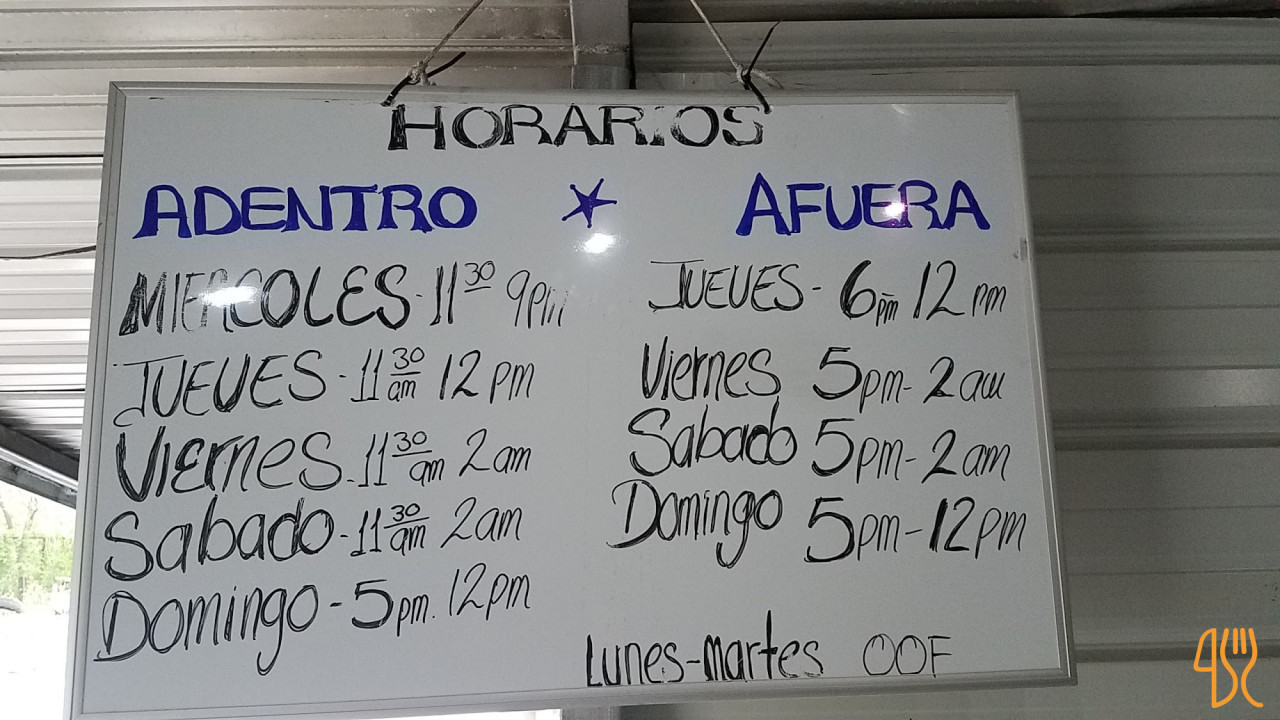 HORARIOS
ADENTRO * AFUERA
MIERCOLES - 11 30 9pm
JUEVES - 11 30 am 12 pm
Viernes - 11 30 am 2 am
Sabado - 11 30 am 2am
Domingo - 5 pm. 12pm
JUEVES - 6 pm 12 pm
Viernes 5pm - 2 am
Sabado 5pm - 2 am
Domingo 5pm - 12pm
Lunes - martes OOF